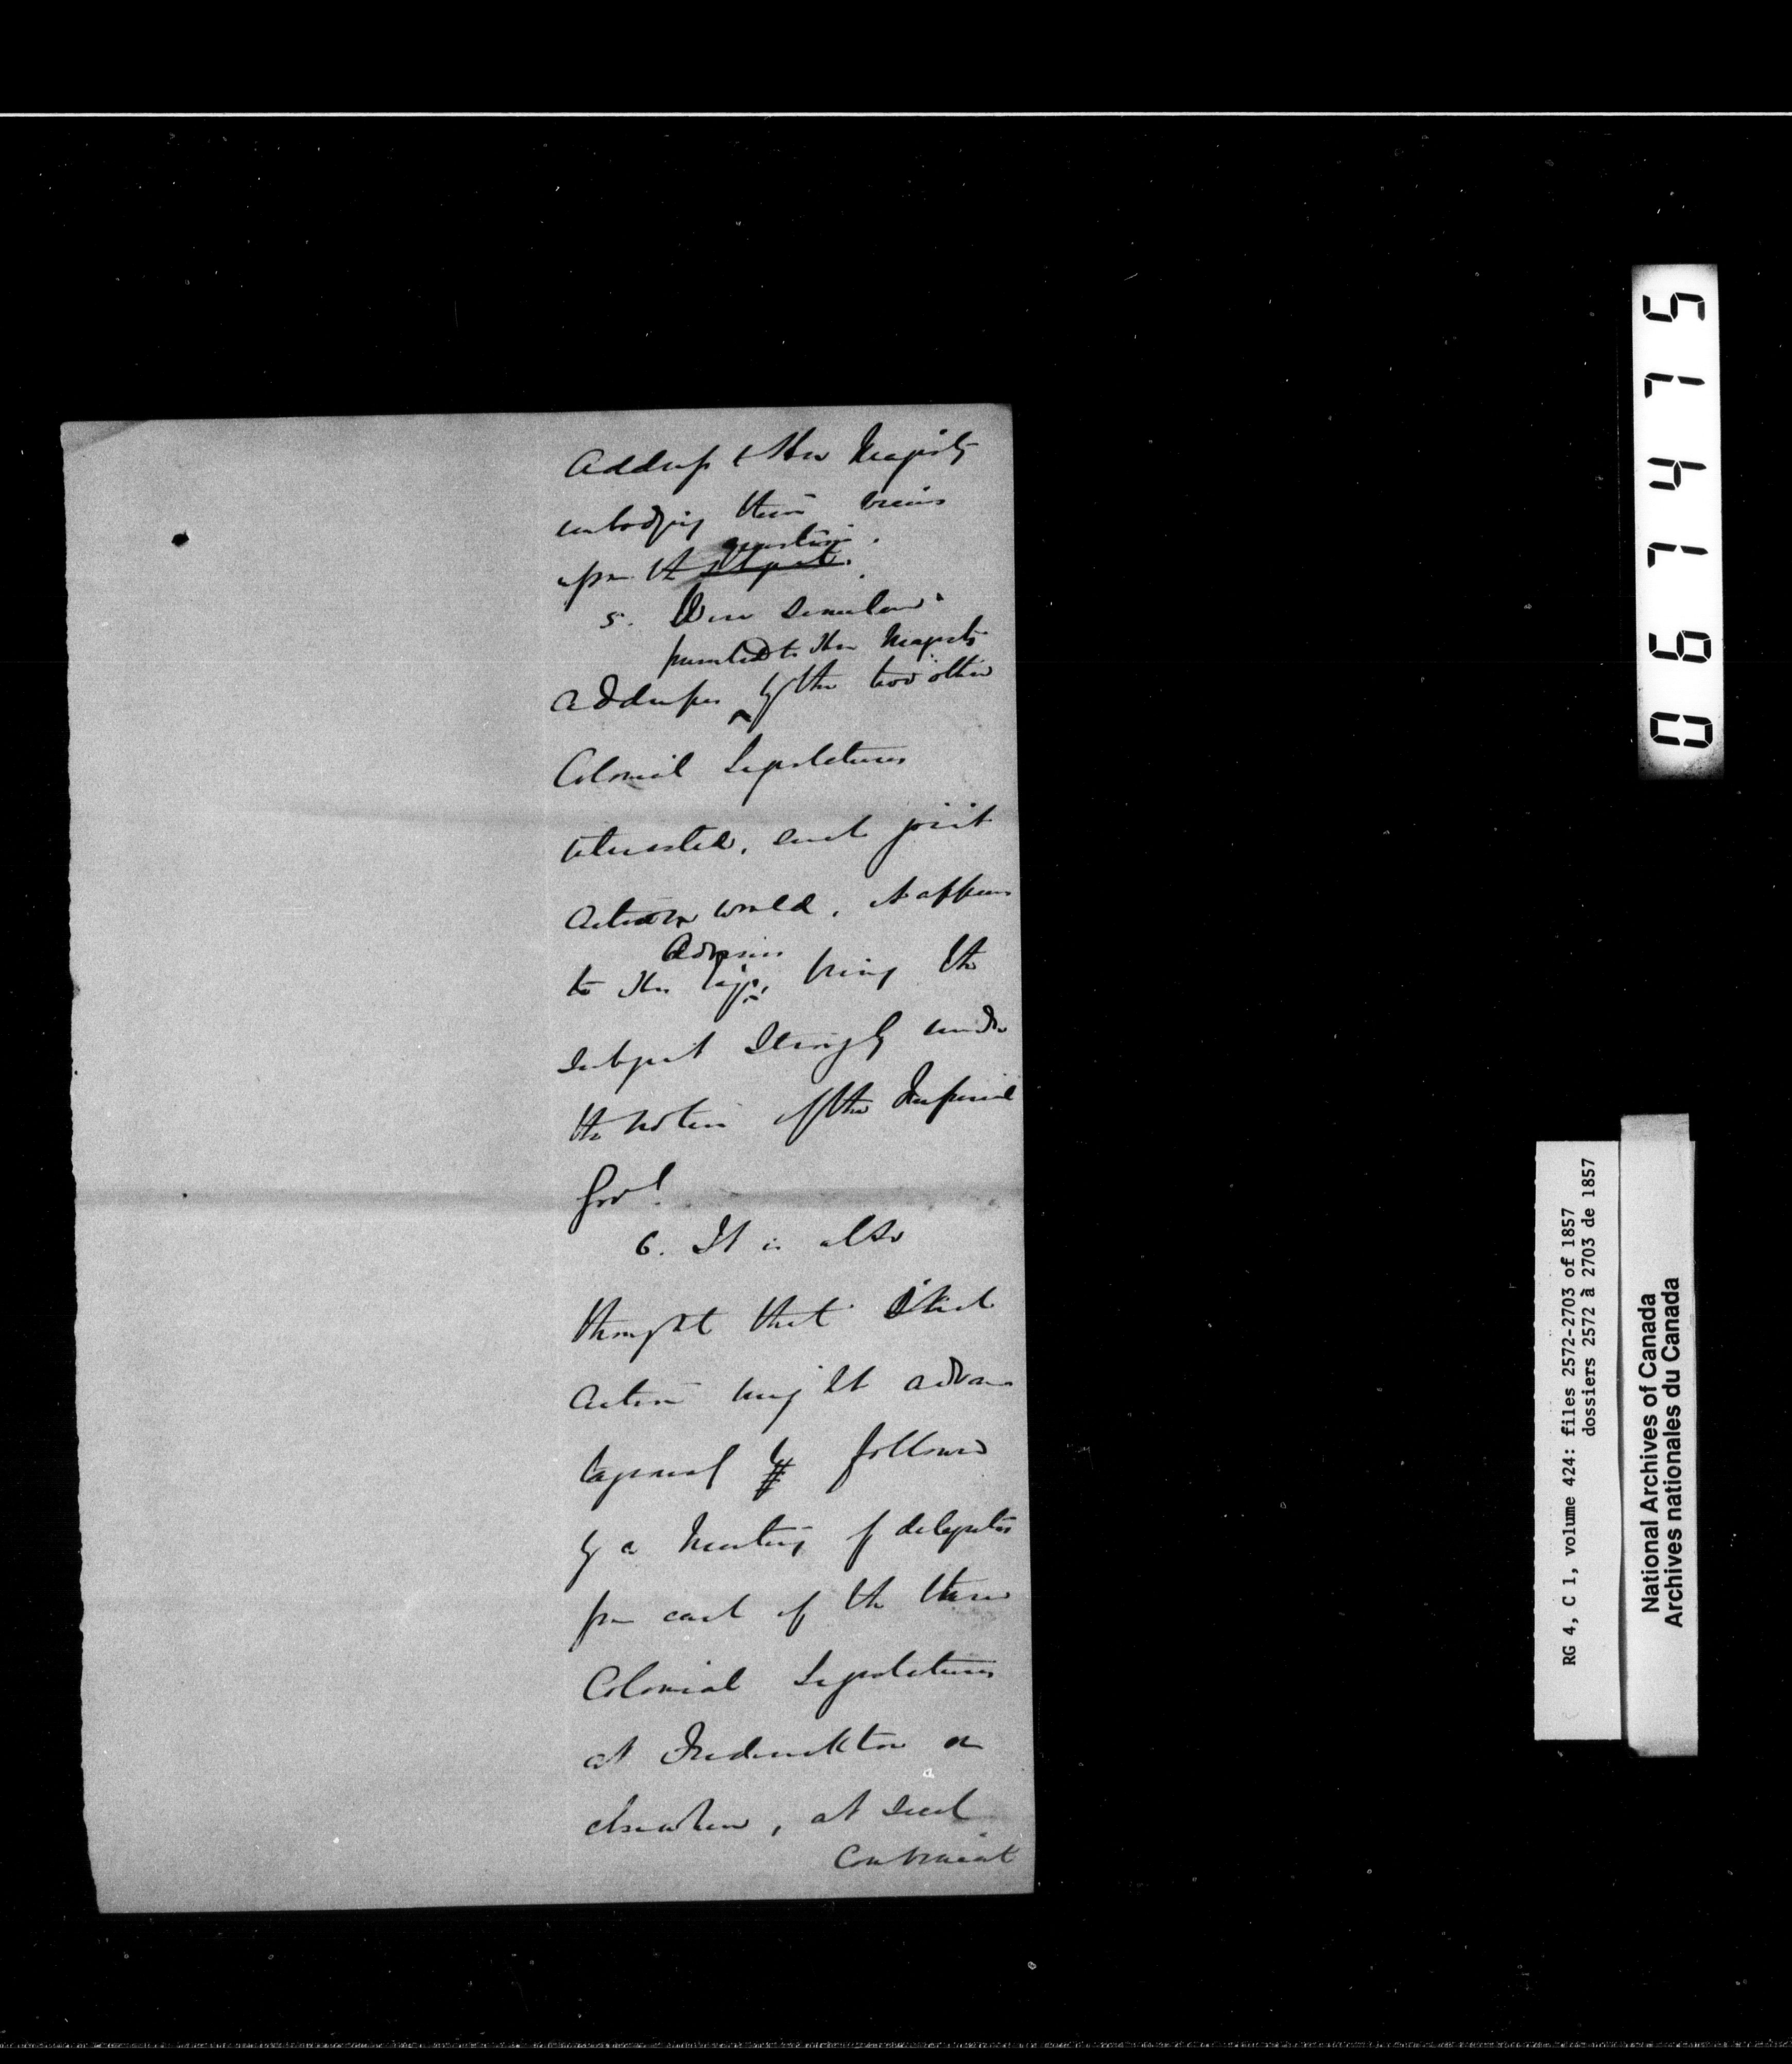 Address to Her Majesty
embodying their views
question.
upon the subject.
5. Were similar
presented to Her Majesty
Addresses by the two other
Colonial Legislatures
interested, such joint
Action would, it appears
to His
bring the
subject strongly under
the notice of the Imperial
Govt.
6. It is also
thought that such
Action might advan
tageously be followed
by a Meeting of delegates
from each of the three
Colonial Legislatures
at Frederickton or
elsewhere, at such
Convenient
067475
RG 4, C 1, volume 424: files 2572-2703 of 1857
dossiers 2572 à 2703 de 1857
National Archives of Canada
Archives nationales du Canada